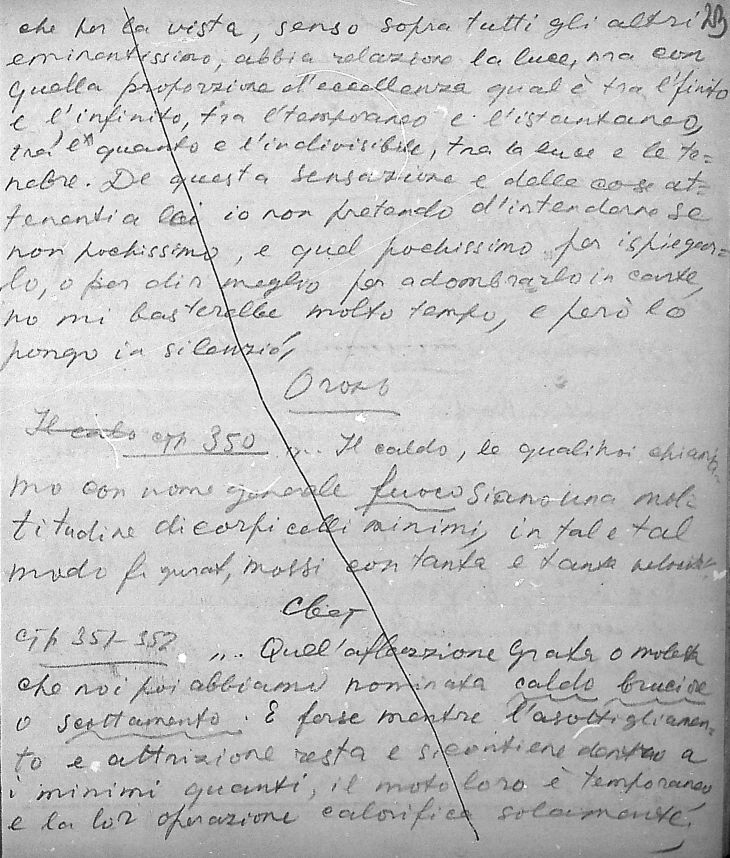 che per la vista, senso sopra tutti gli altri 23
eminentissimo, abbia relazione la luce, ma con
quella proporzione d'eccellenza qual è tra l'finito
e l'infinito, tra l'temporaneo e l'istantaneo,
tra l' quanto e l'indivisibile, tra la luce e le te=
nebre. De questa sensazione e delle cose at=
tenentia lei io non pretendo d'intenderne se
non pochissimo, e quel pochissimo per ispiegar=
lo, o per dir meglio per adombrarlo in carte,
no mi basterebbe molto tempo, e però lo
pongo in silenzio,
Огонь
Il caldo стр 350 „.. Il caldo, le quali noi chiama=
mo con nome generale fuoco siano una mol=
titudine di corpicelli minimi, in tal e tal
modo figurat, mossi con tanta e tanta velocità
Свет
стр 351-352 „.. Quell'affezzione grata o molesta
che noi poi abbiamo nominata caldo bruciore
o scottamento. E forse mentre l'asottigliamen=
to e attrizione resta e si contiene dentro a
i minimi quanti, il moto loro è temporaneo
e la lor operazione calorifica solamente,